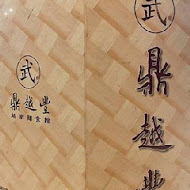 武
鼎越豐
武
鼎
越
豐